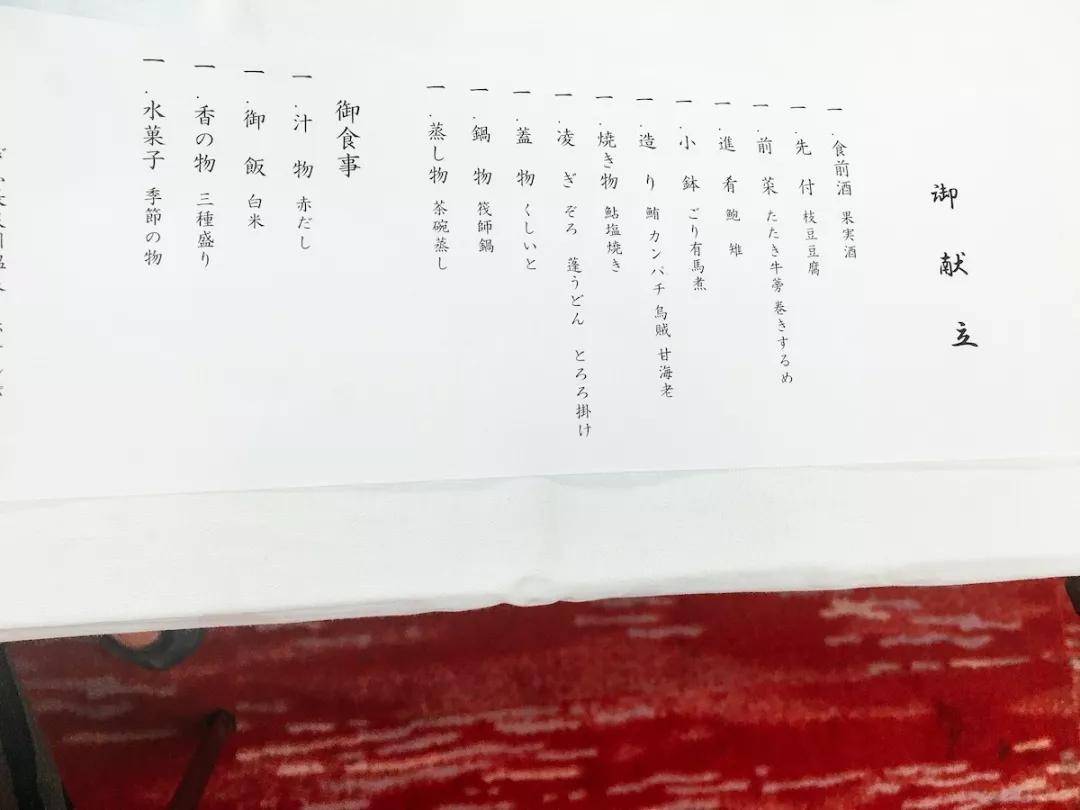 御献立
一.食前酒 果実酒
一.先付 枝豆豆腐
一.前菜 たたき牛蒡 巻きするめ
一.進肴 鮑 雉
一.小鉢 ごり有馬煮
一.造り 鮪 カンパチ 烏賊 甘海老
一.焼き物 鮎塩焼き
一.凌ぎ ぞろ 蓬うどん とろろ掛け
一.蓋物 くしいと
一.鍋物 筏師鍋
一.蒸し物 茶碗蒸し
御食事
一.汁物 赤だし
一.御飯 白米
一.香の物 三種盛り
一.水菓子 季節の物